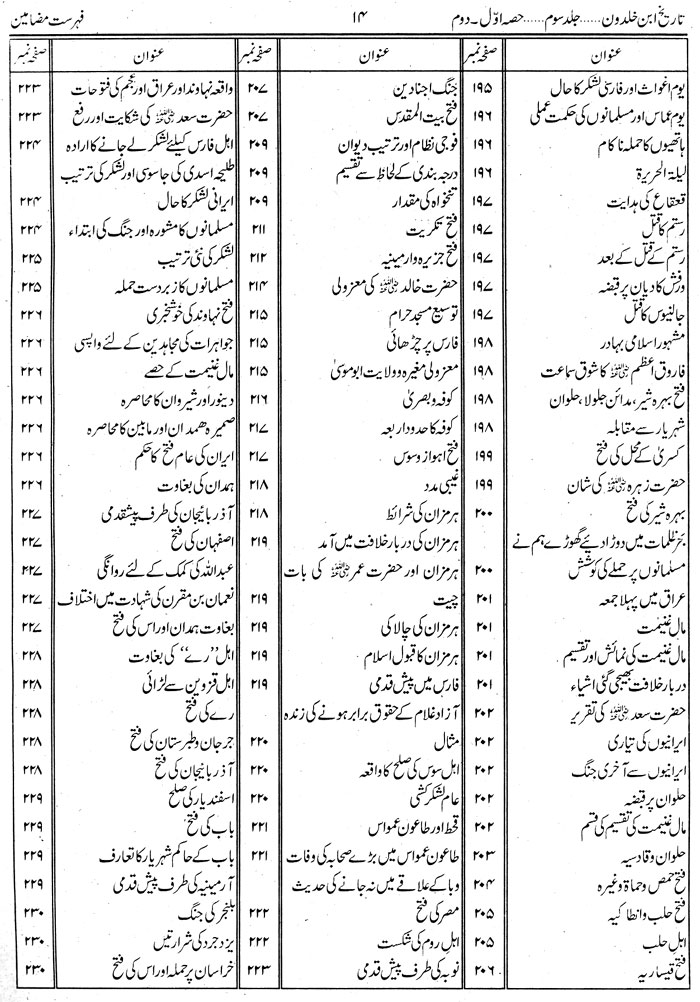 تاریخ ابن خلدون ...... جلد سوم ...... حصہ اوّل ۔ دوم ۱۴ فہرست مضامین
عنوان صفحہ نمبر
یوم اغواث اور فارسی لشکر کا حال ۱۹۵
یوم عماس اور مسلمانوں کی حکمت عملی ۱۹۶
ہاتھیوں کا حملہ ناکام ۱۹۶
لیلۃ الحریرۃ ۱۹۶
قعقاع کی ہدایت ۱۹۷
رستم کا قتل ۱۹۷
رستم کے قتل کے بعد ۱۹۷
ورفش کا دیان پر قبضہ ۱۹۷
جالنیوس کا قتل ۱۹۷
مشہور اسلامی بہادر ۱۹۸
فاروق اعظم ﷺ کا شوق سماعت ۱۹۸
فتح بہرہ شیر، مدائن جلولا، حلوان ۱۹۸
شہریار سے مقابلہ ۱۹۸
کسریٰ کے محل کی فتح ۱۹۹
حضرت زہرہ ﷺ کی شان ۱۹۹
بہرہ شیر کی فتح ۲۰۰
بحر ظلمات میں دوڑا دیئے گھوڑے ہم نے
مسلمانوں پر حملے کی کوشش ۲۰۰
عراق میں پہلا جمعہ ۲۰۱
مال غنیمت ۲۰۱
مال غنیمت کی نمائش اور تقسیم ۲۰۱
دربار خلافت بھیجی گئی اشیاء ۲۰۱
حضرت سعد ﷺ کی تقریر ۲۰۲
ایرانیوں کی تیاری ۲۰۲
ایرانیوں سے آخری جنگ ۲۰۲
حلوان پر قبضہ ۲۰۲
مال غنیمت کی تقسیم کی قسم ۲۰۲
حلوان و قادسیہ ۲۰۳
فتح حمص و حماۃ وغیرہ ۲۰۴
فتح حلب و انطاکیہ ۲۰۵
اہل حلب ۲۰۵
فتح قیساریہ ۲۰۶
عنوان صفحہ نمبر
جنگ اجنادین ۲۰۷
فتح بیت المقدس ۲۰۷
فوجی نظام اور ترتیب دیوان ۲۰۹
درجہ بندی کے لحاظ سے تقسیم ۲۰۹
تنخواہ کی مقدار ۲۰۹
فتح تکریت ۲۱۱
فتح جزیرہ وارمینیہ ۲۱۲
حضرت خالد ﷺ کی معزولی ۲۱۴
توسیع مسجد حرام ۲۱۵
فارس پر چڑھائی ۲۱۵
معزولی مغیرہ و ولایت ابو موسیٰ ۲۱۵
کوفہ و بصریٰ ۲۱۶
کوفہ کا حدود اربعہ ۲۱۷
فتح اہواز و سوس ۲۱۷
غیبی مدد ۲۱۸
ہرمزان کی شرائط ۲۱۸
ہرمزان کی دربار خلافت میں آمد ۲۱۹
ہرمزان اور حضرت عمر ﷺ کی بات
چیت ۲۱۹
ہرمزان کی چالاکی ۲۱۹
ہرمزان کا قبول اسلام ۲۱۹
فارس میں پیش قدمی ۲۱۹
آزاد غلام کے حقوق برابر ہونے کی زندہ
مثال ۲۲۰
اہل سوس کی صلح کا واقعہ ۲۲۰
عام لشکر کشی ۲۲۰
قحط اور طاعون عمواس ۲۲۱
طاعون عمواس میں بڑے صحابہ کی وفات ۲۲۱
وبا کے علاقے میں نہ جانے کی حدیث
مصر کی فتح ۲۲۲
اہل روم کی شکست ۲۲۲
نوبہ کی طرف پیش قدمی ۲۲۳
عنوان صفحہ نمبر
واقعہ نہاوند اور عراق اور عجم کی فتوحات ۲۲۳
حضرت سعد ﷺ کی شکایت اور رفع ۲۲۳
اہل فارس کیلئے لشکر لے جانے کا ارادہ ۲۲۴
طلیحہ اسدی کی جاسوسی اور لشکر کی ترتیب
ایرانی لشکر کا حال ۲۲۴
مسلمانوں کا مشورہ اور جنگ کی ابتداء ۲۲۴
لشکر کی نئی ترتیب ۲۲۵
مسلمانوں کا زبردست حملہ ۲۲۵
فتح نہاوند کی خوشخبری ۲۲۶
جواہرات کی مجاہدین کے لئے واپسی ۲۲۶
مال غنیمت کے حصے ۲۲۶
دینور اور شیروان کا محاصرہ ۲۲۶
صمیرہ ھمدان اور ماہین کا محاصرہ ۲۲۶
ایران کی عام فتح کا حکم ۲۲۶
ہمدان کی بغاوت ۲۲۶
آذربائیجان کی طرف پیشقدمی ۲۲۷
اصفہان کی فتح ۲۲۷
عبداللہ کی کمک کے لئے روانگی ۲۲۷
نعمان بن مقرن کی شہادت میں اختلاف ۲۲۷
بغاوت ہمدان اور اس کی فتح ۲۲۷
اہل "رے" کی بغاوت ۲۲۸
اہل قزوین سے لڑائی ۲۲۸
رے کی فتح ۲۲۸
جرجان و طبرستان کی فتح ۲۲۸
آذربائیجان کی فتح ۲۲۸
اسفندیار کی صلح ۲۲۹
باب کی فتح ۲۲۹
باب کے حاکم شہریار کا تعارف ۲۲۹
آرمینیہ کی طرف پیش قدمی ۲۲۹
بلنجر کی جنگ ۲۳۰
یزدجرد کی شرارتیں ۲۳۰
خراسان پر حملہ اور اس کی فتح ۲۳۰